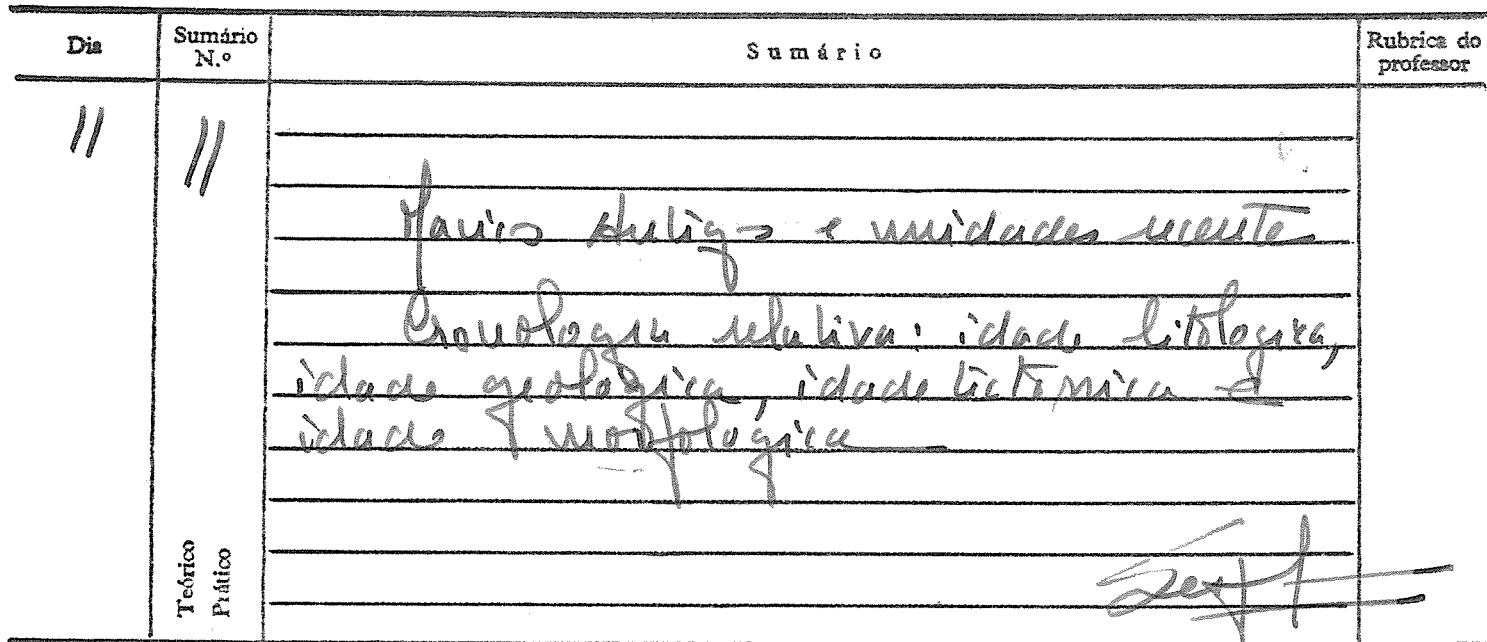 Dia
Sumário N.º
Sumário
Rubrica do professor
11
11
Maciços Antigos e unidades recentes
Cronologia relativa: idade litológica,
idade geológica, idade tectónica e
idade morfológica
Teórico
Prático